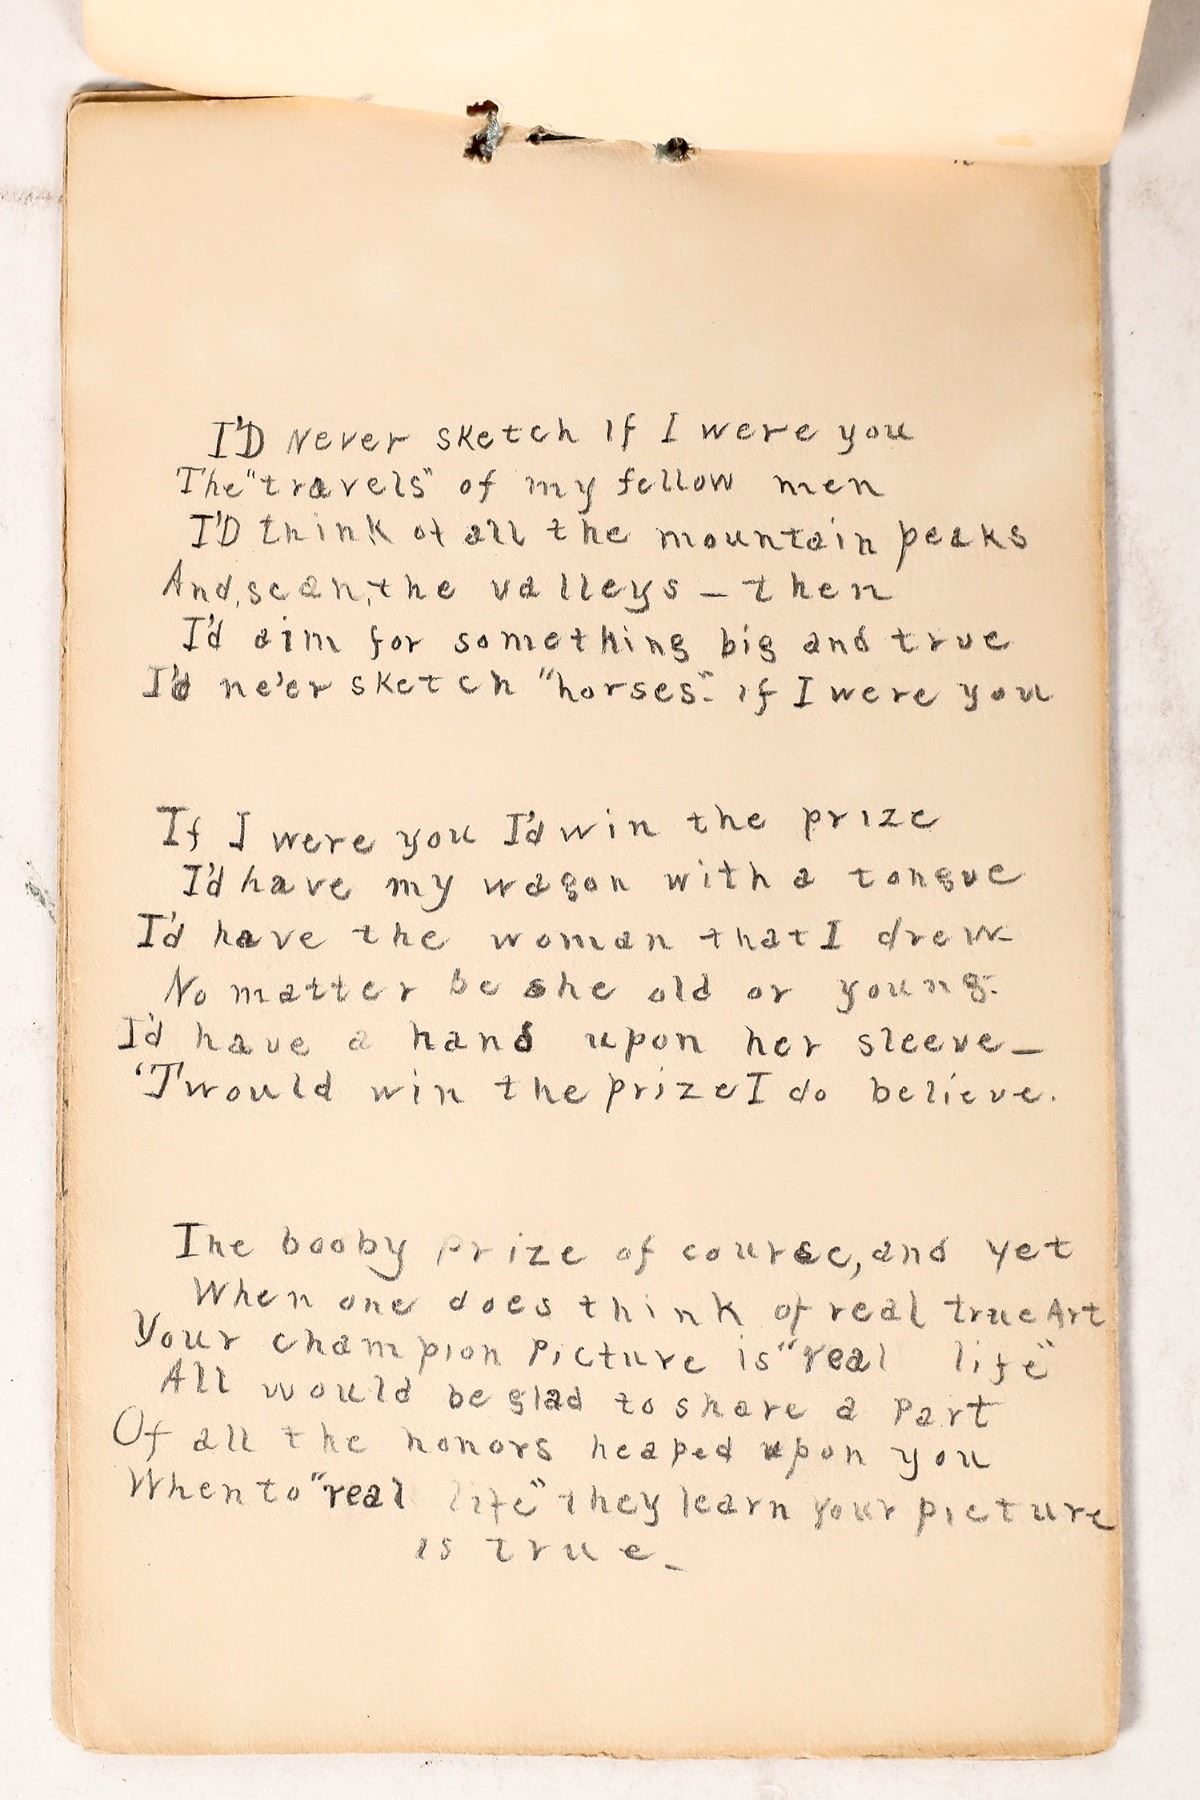 I'D Never sketch If I were you
The "travels" of my fellow men
I'D think of all the mountain peaks
And, scan, the valleys – then
I'd aim for something big and true
I'd ne'er sketch "horses". if I were you
If I were you I'd win the prize
I'd have my wagon with a tongue
I'd have the woman that I drew
No matter be she old or young.
I'd have a hand upon her sleeve –
'Twould win the prize I do believe.
The booby prize of course, and yet
When one does think of real true Art
Your champion Picture is "real life"
All would be glad to share a Part
Of all the honors heaped upon you
When to "real life" they learn your picture
is true –